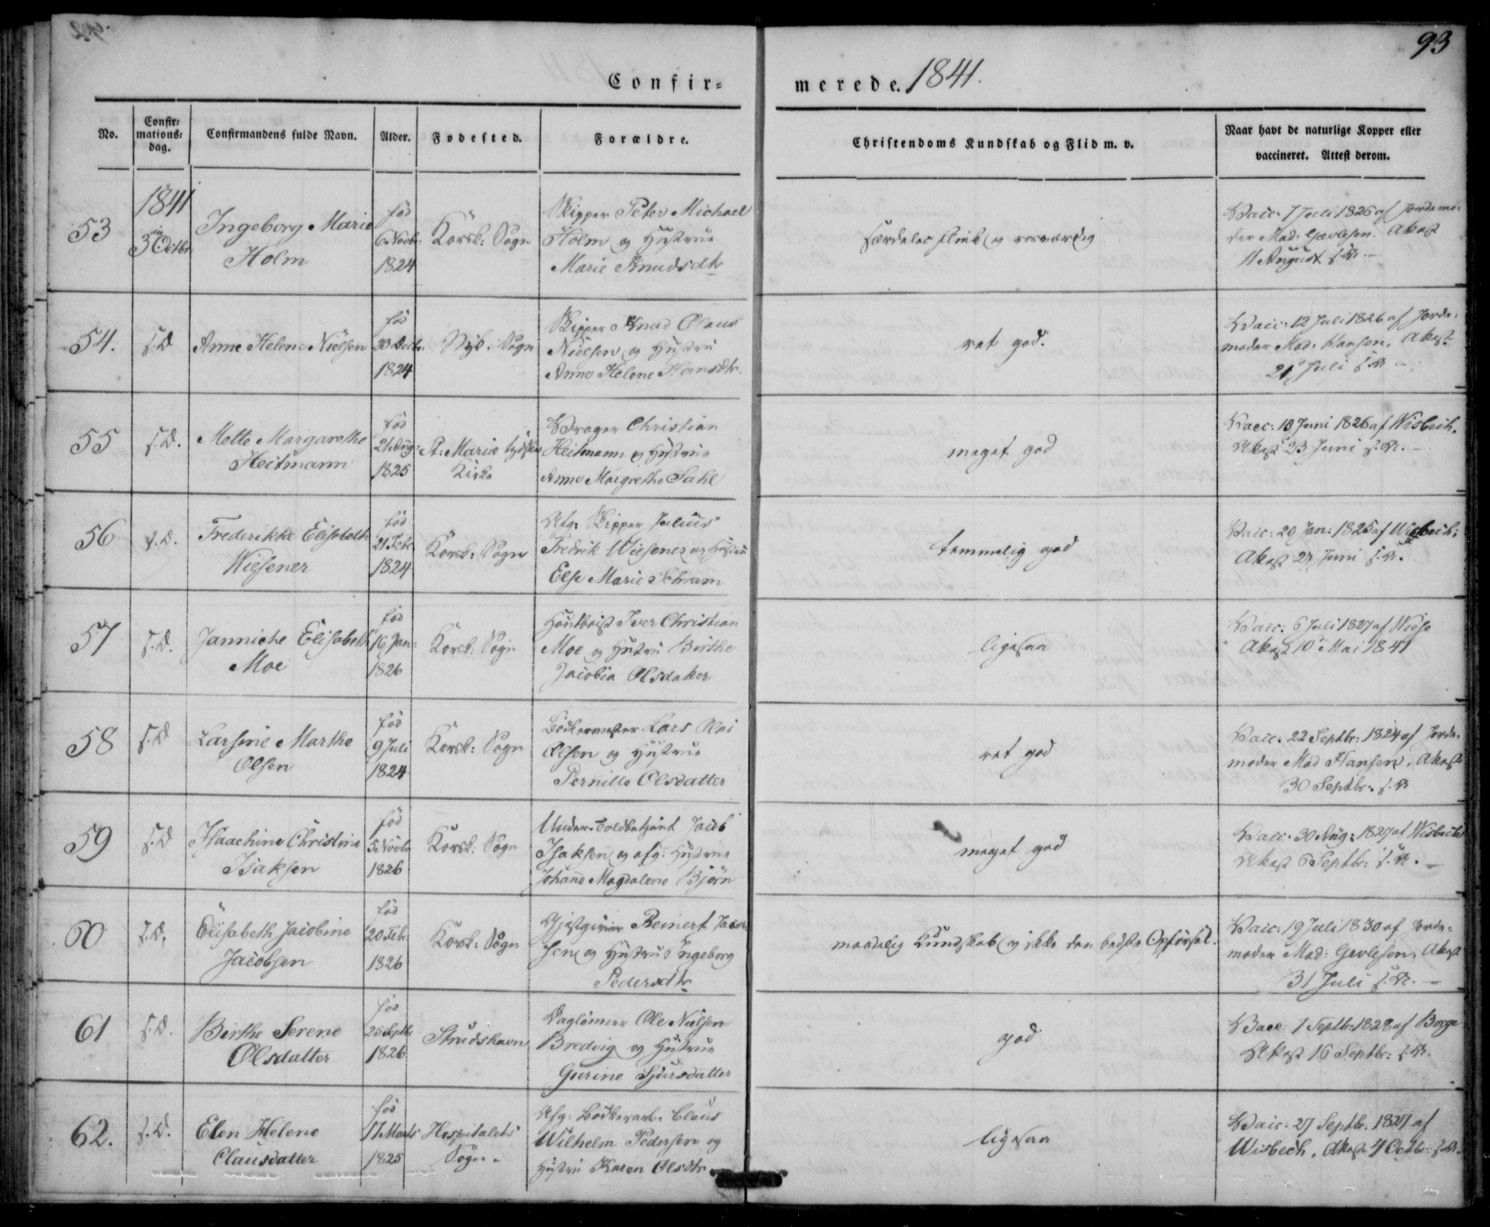 93
Confir=
merede. 1841.
No.
Confir=
mations=
dag.
Confirmandens fulde Navn.
Alder.
Fødested.
Forældre.
Christendoms Kundskab og Flid m. v.
Naar havt de naturlige Kopper eller
vaccineret. Attest derom.
53
1841
3 Octbr
Ingeborg Marie
Holm
fød
6 Novbr
1824
Korsk: Sogn
Skipper Peter Michael
Holm og Hustrue
Marie Knudsdtr
særdeles flink og
Vacc: 7 Juli 1826 af Jordemo=
der Mad: Attest
11 August s. A. –
54.
s. D
Anne Helene Nielsen
fød
30 Decbr.
1824
Nyk: Sogn
Skipper Knud Olaus
Nielsen og Hustru
Anne Helene Hansdtr.
ret god.
Vacc: 12 Juli 1826 af Jorde=
moder Mad. Hansen. Attest
21 Juli s. A. –
55
s. D.
Mette Margarethe
Heitmann
fød
21 Aug:
1825
St: Mariæ tydske
Kirke
Drager Christian
Heitmann og Hustrue
Anne Margrethe Dahl
meget god
Vacc: 13 Juni 1826 af Wisbech.
Attest 23 Juni s. A. –
56
s. D.
Frederikke Elisabeth
Wiesener
fød
21 Febr
1824
Korsk: Sogn
Afg: Skipper Julius
Fredrik Wiesener og Hustrue
Else Marie Schram
temmelig god
Vacc: 20 Jan: 1825 af Wisbech:
Attest 27 Juni s. A.
57
s. D.
Janniche Elisabeth
Moe
fød
16 Jan:
1826
Korsk. Sogn
Hautboist Iver Christian
Moe og Hustru Birthe
Jacobia Olsdatter
ligesaa
Vacc: 6 Juli 1827 af Wiese
Attest 10 Mai 1841
58
s. D
Larsine Marthe
Olsen
fød
9 Juli
1824
Korsk: Sogn
Bødkermester Lars Olai
Olsen og Hustrue
Pernille Olsdatter
ret god
Vacc: 22 Septbr: 1824 af Jorde=
moder Mad Hansen. Attest
30 Septbr. s. A.
59
s. D
Haachine Christine
Isaksen
fød
5 Novbr
1826
Korsk: Sogn
Under-Toldbetjent Jacob
Isaksen og afg: Hustrue
Johanne Magdalene Bjørn
meget god
Vacc: 30 Aug: 1827 af Wisbech
Attest 6 Septbr: s. A. –
60
s. D.
Elisabeth Jacobine
Jacobsen
fød
20 Febr.
1826
Korsk: Sogn
Gjestgiver Reinert Jacob
sen og Hustrue Ingeborg
Pedersdtr
maadelig Kundskab og ikke den bedste Opførsel.
Vacc: 19 Juli 1830 af Jorde=
moder Mad: Attest
31 Juli s. A. –
61
s. D.
Birthe Serene
Olsdatter
fød
25 Septbr
1826
Strudshavn
Daglønner Ole Nielsen
Bredvig og Hustrue
Gurine Sjursdatter
god
Vacc. 7 Septbr: 1828 af Borge
Attest 16 Septbr: s. A.
62.
s. D.
Elen Helene
Clausdatter
fød
17 Marts
1825
Hospitalets
Sogn.
Afg: Bødkerarb. Claus
Wilhelm Pedersen og
Hustru Karen Olsdtr
ligesaa
Vacc. 27 Septbr. 1827 af
Wisbech. Attest 4 Octbr. s. A.